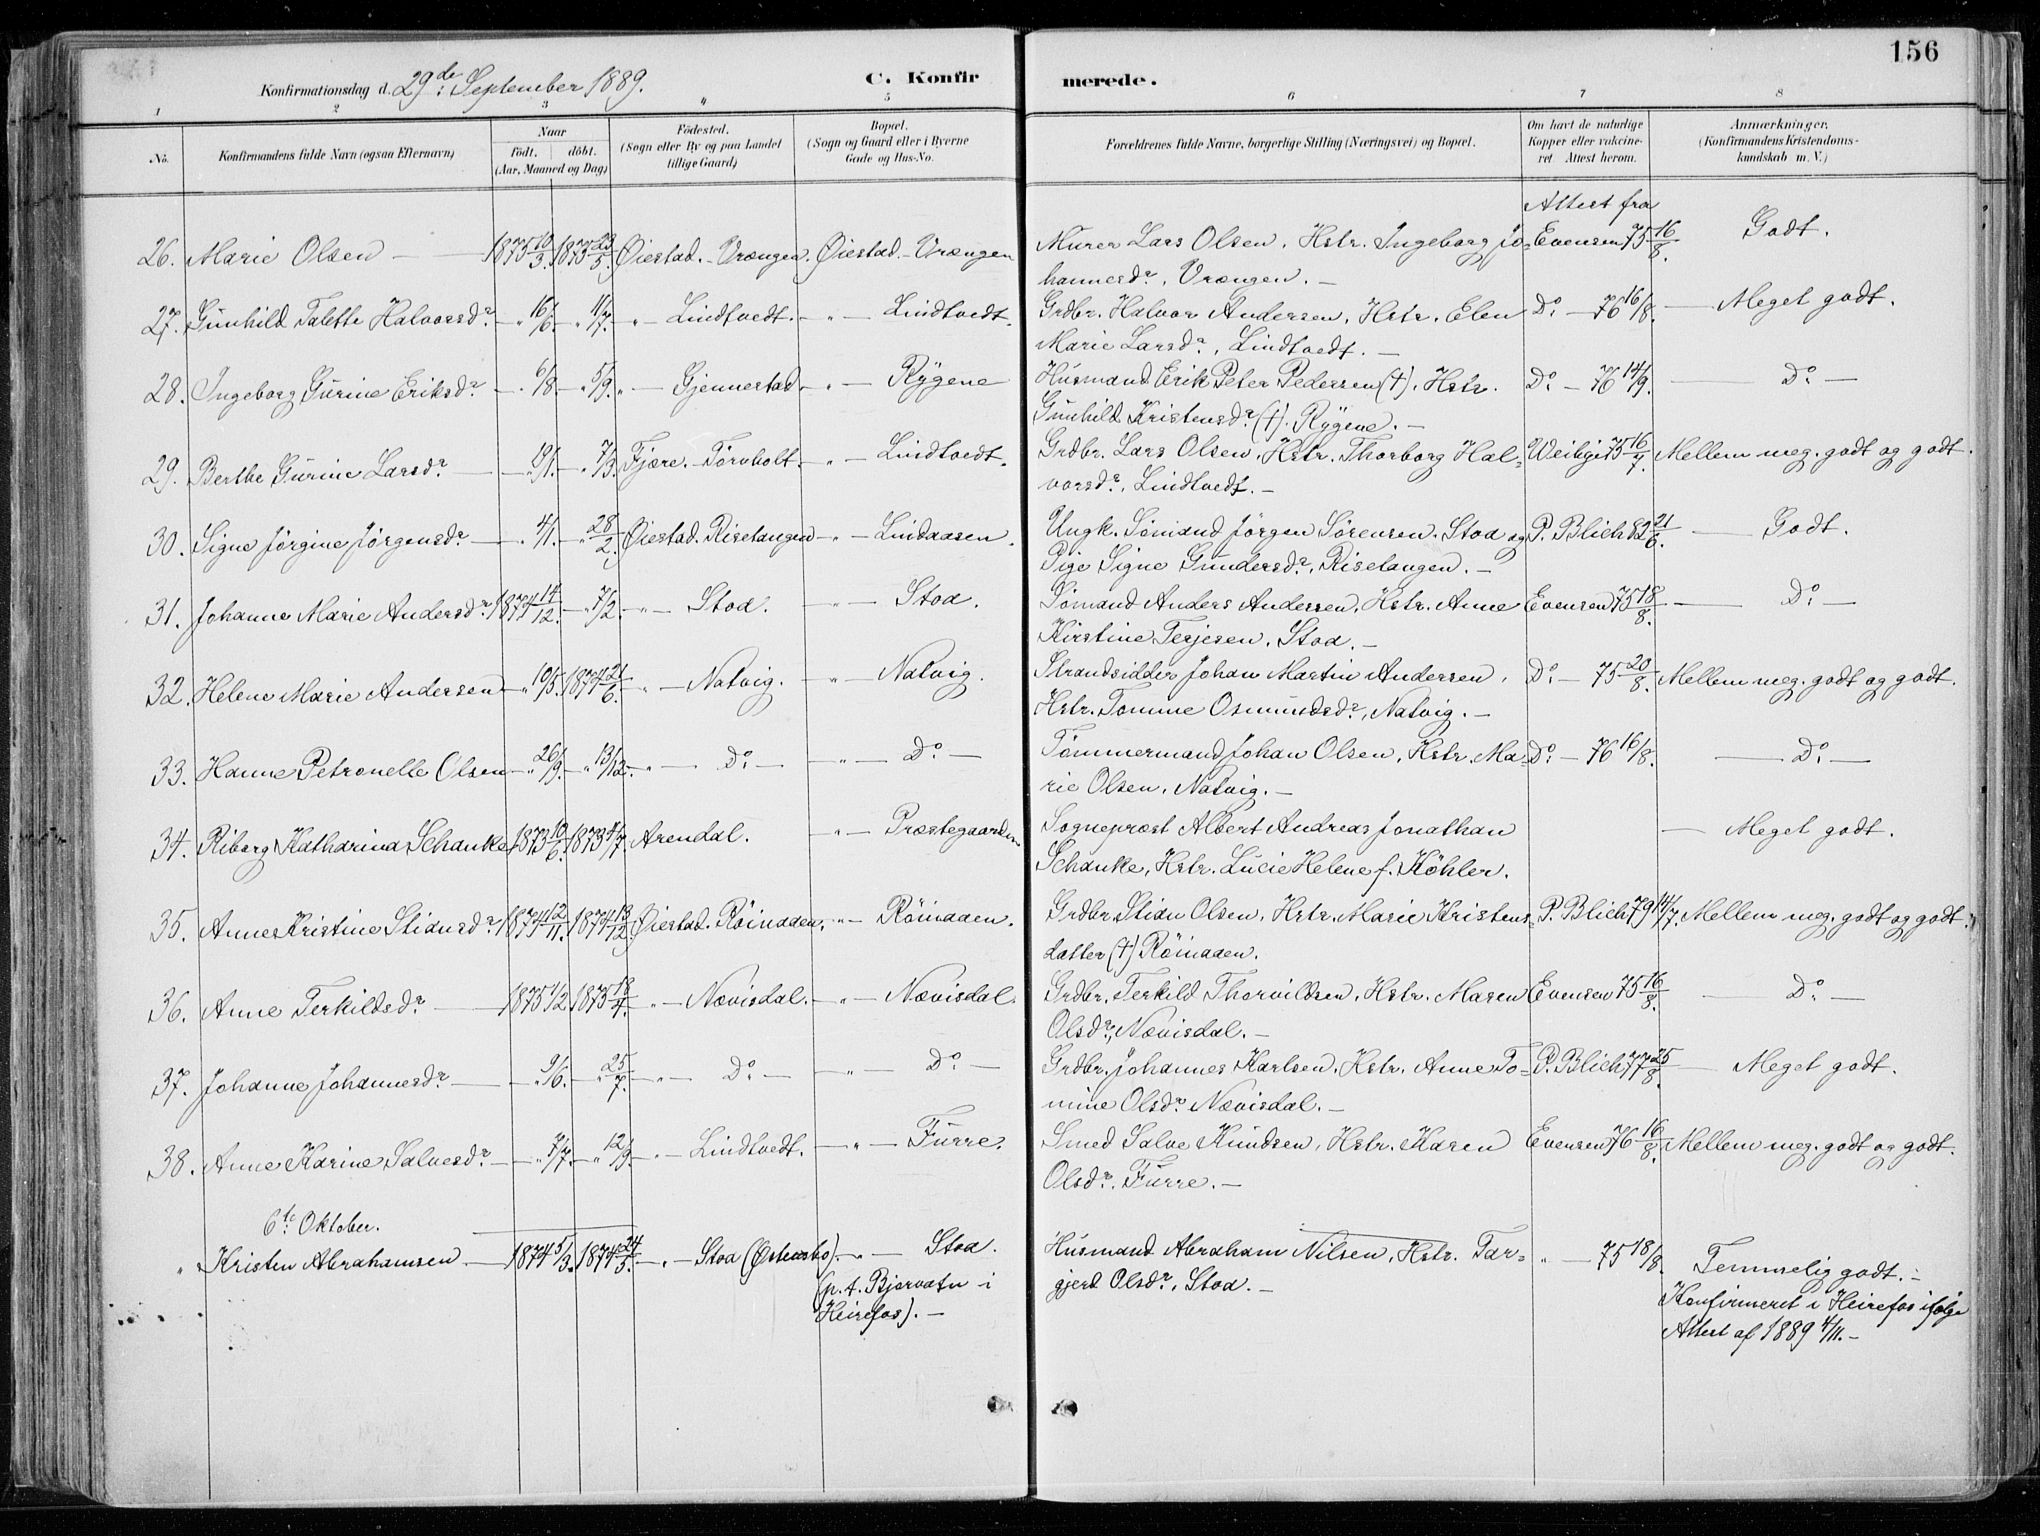 156
Konfirmationsdag d. 29de September 1889.
C. Konfirmerede.
1 2 3 " 5 6 7 8
No. Konfirmandens fulde Navn (ogsaa Efternavn) Naar født, døbt. (Aar, Maaned og Dag) Fødested. (Sogn eller By og paa Landet tillige Gaard) Bopæl. (Sogn og Gaard eller i Byerne Gade og Hus-No. Forældrenes fulde Navne, borgerlige Stilling (Næringsvei) og Bopæl. Om havt de naturlige Kopper eller vakcineret. Attest herom. Anmærkninger, (Konfirmandens Kristendomskundskab m. V.)
Attest fra
26. Marie Olsen — 1875 10/3. 1875 23/5. Øiestad. - Vrængen. Øiestad. - Vrængen Murer Lars Olsen, Hstr. Ingeborg Jo- Evensen 75 16/8. Godt.
hannesdr, Vrængen. —
27. Gunhild Talette Halvorsdr. — " 16/6. — " 11/7. " — Lindtvedt. — " — Lindtvedt. Grdbr. Halvor Andersen, Hstr. Elen Do. — 76 16/8. — Meget godt.
Marie Larsdr., Lindtvedt. —
28. Ingeborg Gurine Eriksdr. — " 6/8. — " 5/9. " — Gjennestad — " — Rygene Husmand Erik Peter Pedersen (†), Hstr. Do. — 76 14/9. — Do. —
Gunhild Kristensdr. (†). Rygene. —
29. Berthe Gurine Larsdr. — " 19/1. — " 7/3. Fjære. - Törvholt. — " — Lindtvedt. Grdbr. Lars Olsen, Hstr. Thorborg Hal- Weibye 75 16/7. Mellem meg. godt og godt.
vorsdr., Lindtvedt. —
30. Signe Jörgine Jörgensdr. — " 4/1. — " 28/2. Øiestad. Riselangen — " — Lindaasen. Ungk. Sömand Jörgen Sörensen. Stoa og P. Blich 82 21/6. — Godt.
Pige Signe Gundersdr., Riselangen. —
31. Johanne Marie Andersdr. 1874 14/12. — " 7/2. — " — Stoa. — " — Stoa. Sömand Anders Andersen, Hstr. Anne Evensen 75 18/8. — Do. —
Kirstine Terjesen, Stoa. —
32. Helene Marie Andersen — " 10/5. 1874 21/6. — " — Natvig. — " — Natvig. Strandsidder Johan Martin Andersen, Do. — 75 20/8. Mellem meg. godt og godt.
Hstr. Tomine Osmundsdr., Natvig. —
33. Hanne Petronelle Olsen — " 26/9. — " 13/12. — " — Do. — — " — Do. — Tömmermand Johan Olsen, Hstr. Ma- Do. — 76 16/8. — Do. —
rie Olsen, Natvig. —
34. Riborg Katharina Schanke 1873 10/6. 1873 4/7. Arendal. — " — Præstegaarden Sognepræst Albert Andreas Jonathan — Meget godt.
Schanke, Hstr. Lucie Helene f. Köhler.
35. Anne Kristine Stiansdr. 1874 12/11. 1874 13/12. Øiestad. Röinaaen. — " — Röinaaen. Grdbr. Stian Olsen, Hstr. Marie Kristens- P. Blich 79 14/7. Mellem meg. godt og godt.
datter (†) Röinaaen.
36. Anne Terkildsdr. — 1875 1/2. 1875 18/4. " — Nævisdal. — " — Nævisdal. Grdbr. Terkild Thorvildsen, Hstr. Maren Evensen 75 16/8. — Do. —
Olsdr., Nævisdal. —
37. Johanne Johannesdr. — " 9/6. — " 25/7. — " — Do. — — " — Do. — Grdbr. Johannes Karlsen, Hstr. Anne To- P. Blich 77 25/8. — Meget godt.
mine Olsdr. Nævisdal. —
38. Anne Karine Salvesdr. — " 7/7. — " 12/9. — " — Lindtvedt. — " — Furre. Smed Salve Knudsen, Hstr. Karen Evensen 76 16/8. Mellem meg. godt og godt.
Olsdr. Furre. —
6te Oktober.
" Kristen Abrahamsen — 1874 5/3. 1874 24/5. — " — Stoa (Østensbo). — " — Stoa. Husmand Abraham Nilsen, Hstr. Tar- " — 75 18/8. Temmelig godt. —
(p. t. Bjorvatn i gjerd Olsdr., Stoa. — Konfirmeret i Heirefos ifølge
Heirefos). — Attest af 1889 4/11. —